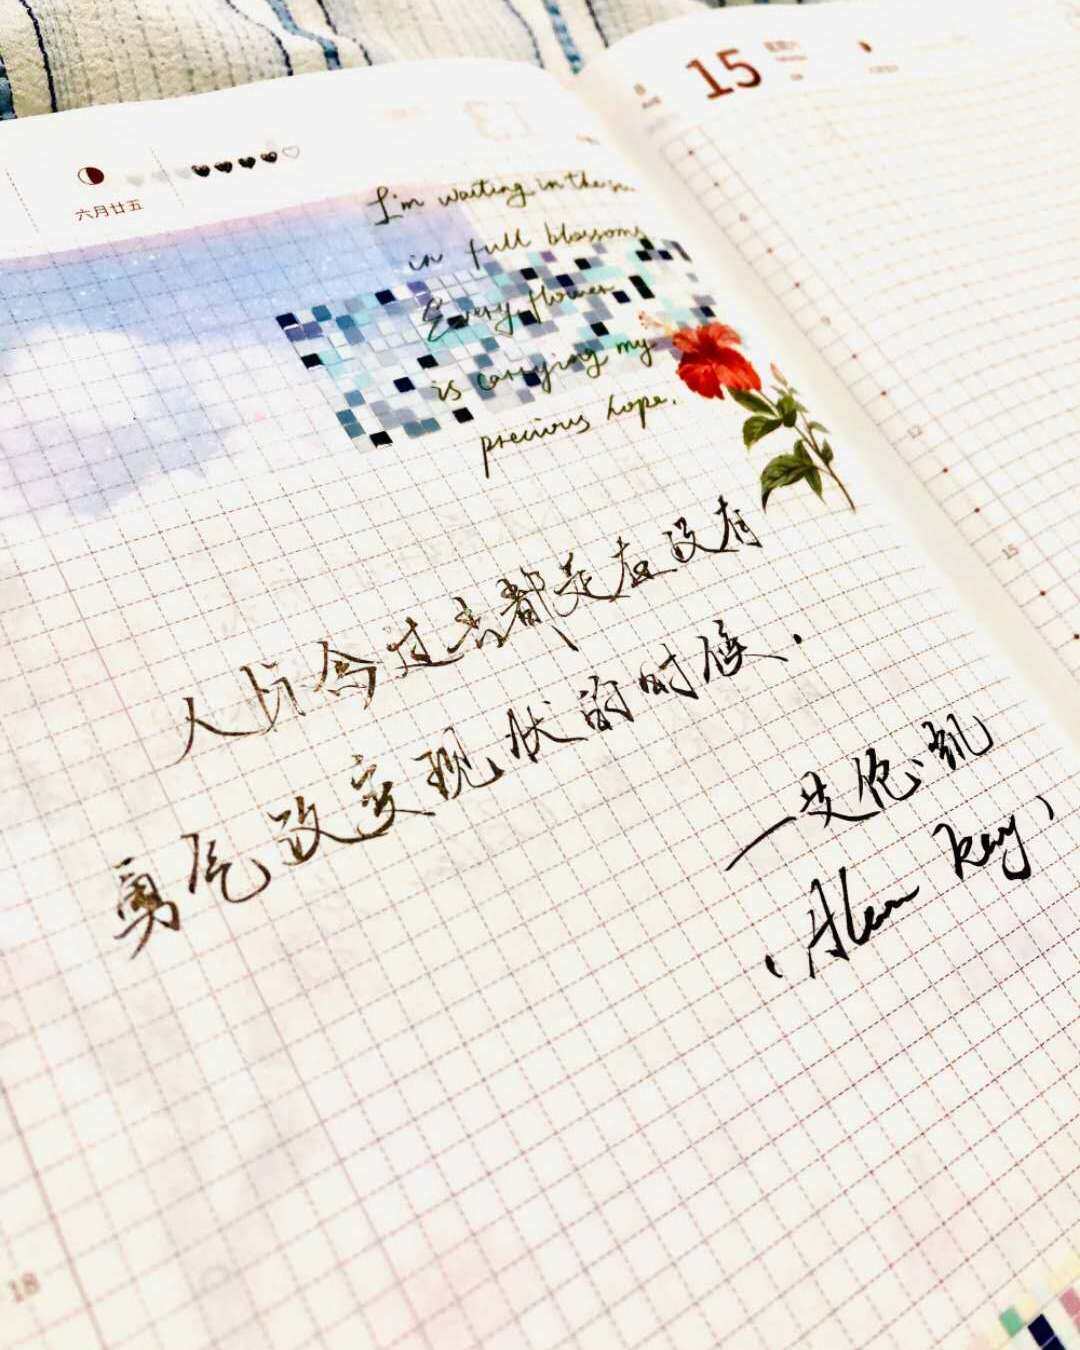 六月廿五
15
I'm waiting in the
in full blossoms
Every flower
is carrying my
precious hope.
12
15
人怀念过去都是在没有
勇气改变现状的时候.
—艾伦·凯
(Alan Kay)
18